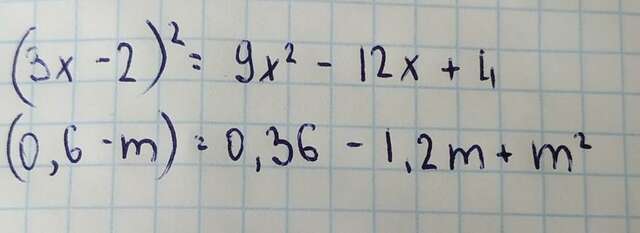 (3x - 2)² = 9x² - 12x + 4
(0,6 - m) = 0,36 - 1,2m + m²